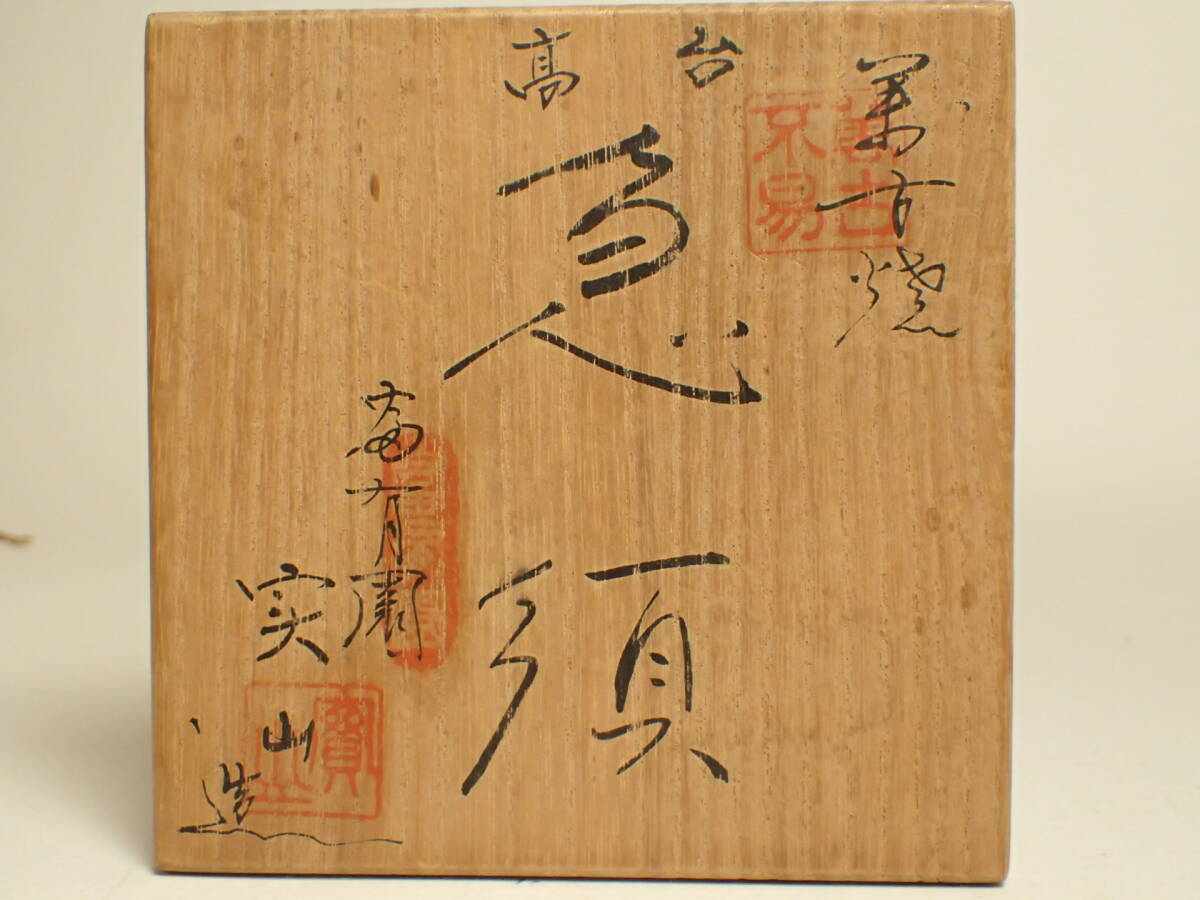 萬古焼
萬古不易
高台
急須
富有園
実山造
實山